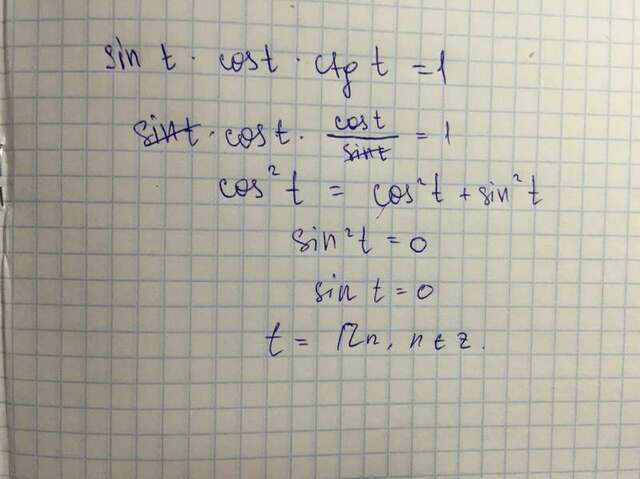 sin t · cos t · ctg t = 1
sin t · cos t · cos t / sin t = 1
cos² t = cos² t + sin² t
sin² t = 0
sin t = 0
t = πn, n ∈ z.